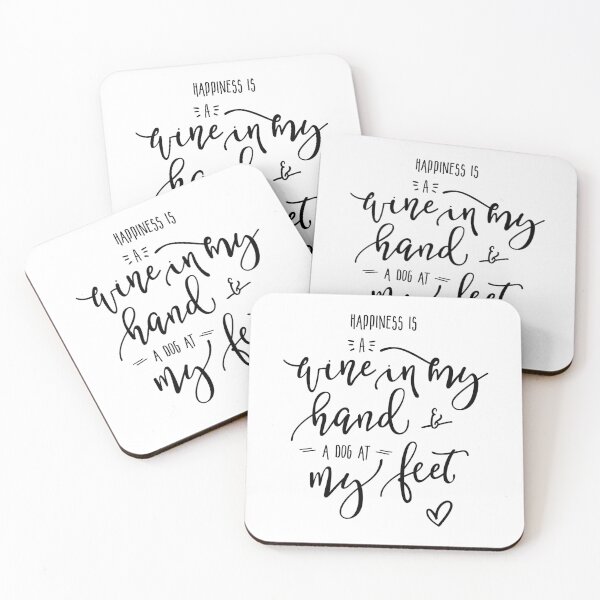 HAPPINESS IS
A
wine in my
hand &
HAPPINESS IS
A
wine in my
hand &
A DOG AT
my feet
HAPPINESS IS
A
wine in my
hand &
A DOG AT
my fe
HAPPINESS IS
A
wine in my
hand &
A DOG AT
my feet